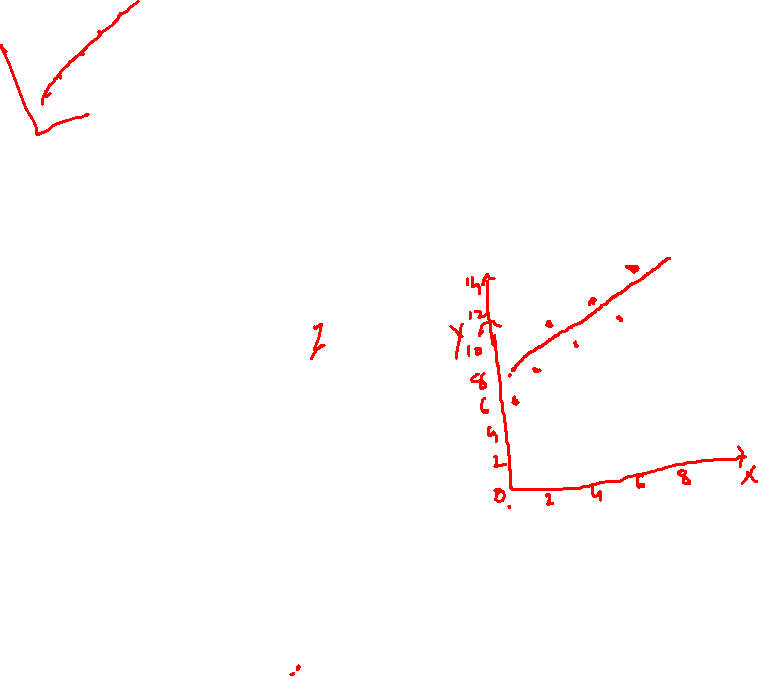 14
12
Y
10
8
6
4
2
0 2 4 6 8 X